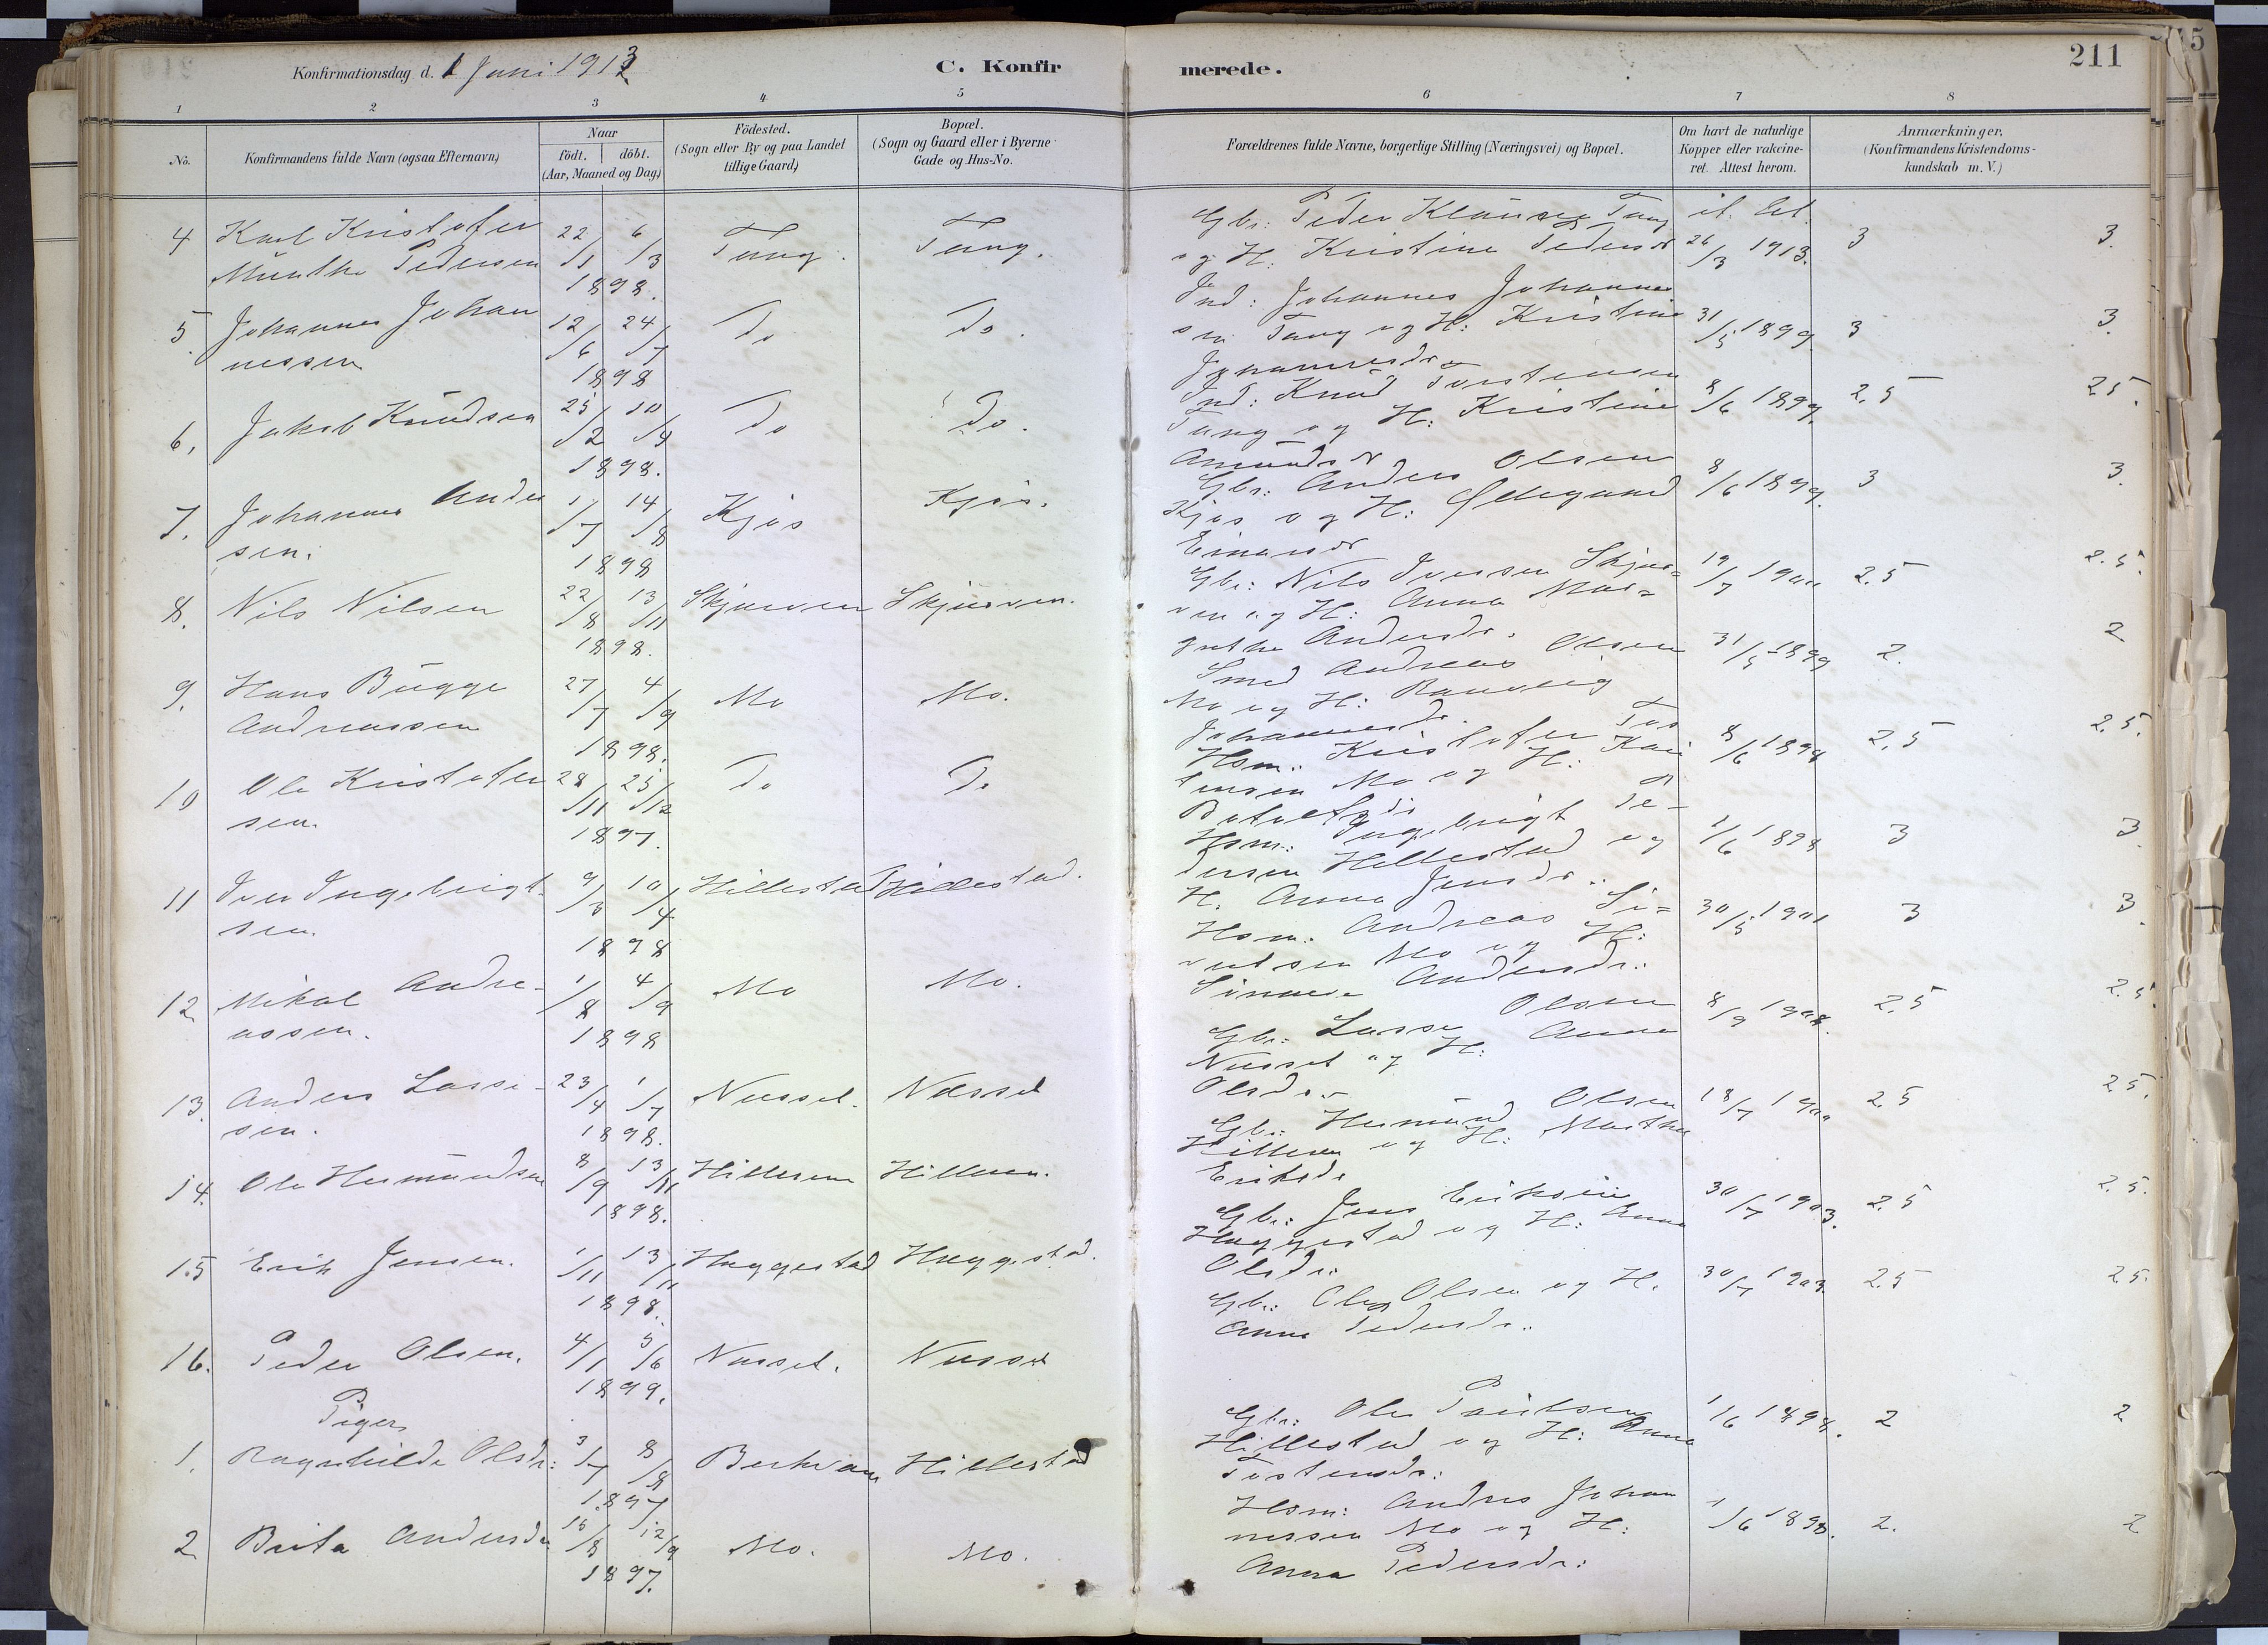 211
Konfirmationsdag d. 1 Juni 1913
C. Konfirmerede.
1 2 3 4 5 6 7 8
No.
Konfirmandens fulde Navn (ogsaa Efternavn)
Naar
födt. döbt.
(Aar, Maaned og Dag)
Födested.
(Sogn eller By og paa Landet
tillige Gaard)
Bopæl.
(Sogn og Gaard eller i Byerne
Gade og Hus-No.
Forældrenes fulde Navne, borgerlige Stilling (Næringsvei) og Bopæl.
Om havt de naturlige
Kopper eller vakcine-
ret. Attest herom.
Anmærkninger.
(Konfirmandens Kristendoms-
kundskab m. V.)
4 Karl Kristofer
Munthe Pedersen
22/1 6/3
1898.
Tang. Tang.
Gbr: Peder Klausen Tang
og H. Kristine Pedersdr
26/3 1913. 3 3.
5. Johannes Johan
nessen
12/6 24/7
1898
Do Do.
Ind: Johannes Johannes
sen Tang og H: Kristine
Johannesdr
31/5 1899. 3 3.
6. Jakob Knudsen
25/2 10/4
1898.
Do Do.
Ind: Knud Torstensen
Tang og H: Kristine
Amundsdr
8/6 1899. 2.5 2.5.
7. Johannes Ander
sen.
1/7 14/8
1898
Kjøs Kjøs.
Gbr: Anders Olsen
Kjøs og H: Ødegaard
Einarsdr
8/6 1899. 3 3.
8. Nils Nilsen
22/8 13/11
1898.
Skjerven Skjerven.
Gbr: Nils Iversen Skjer=
ven og H: Anna Mar=
grethe Andersdr.
19/7 1900 2.5 2.5.
9. Hans Bugge
Andreassen
27/7 4/9
1898.
Mo Mo.
Smed Andreas Olsen
Mo og H: Ranveig
Johannesdr.
31/5 1899 2. 2
10 Ole Kristofer
sen.
28/11 25/12
1897.
Do Do
Hsm: Kristofer Tos
tensen Mo og H: Kari
Botolfsdr
8/6 1898 2.5 2.5.
11 Iver Ingebrigt-
sen.
9/3 10/4
1898
Hillestad Hillestad.
Hsm: Ingebrigt Pe-
dersen Hillestad og
H. Anna Jensdr.
1/6 1898 3 3.
12 Mikal Andre-
assen.
1/8 4/9
1898
Mo Mo.
Hsm. Andreas Si=
vertsen Mo og H:
Sünneve Andersdr.
30/5 1901 3 3.
13. Anders Lasse-
sen.
23/4 1/7
1898.
Næsset. Næsset
Gbr: Lasse Olsen
Næsset og H: Anna
Olsdr.
8/9 1908. 2.5 2.5.
14. Ole Hermundsen
8/9 13/11
1898.
Hilleren Hilleren.
Gbr: Hermund Olsen
Hilleren og H: Martha
Eriksdr
18/7 1900 2.5 2.5.
15 Erik Jensen.
1/11 13/11
1898.
Hæggestad Hæggestad.
Gbr: Jens Eriksen
Hæggestad og H: Anna
Olsdr.
30/7 1903. 2.5 2.5.
16. Peder Olsen.
4/1 5/6
1899.
Næsset. Næsset
Gbr: Ole Olsen og H.
Anna Pedersdr.
30/7 1903. 2.5 2.5.
Piger
1. Ragnhilde Olsdr:
3/7 8/8
1897
Berkvam Hillestad
Gbr: Ole Paulsen
Hillestad og H: Anna
Tostensdr.
1/6 1898. 2 2
2 Brita Andersdr
15/8 12/9
1897.
Mo. Mo.
Hsm: Andres Johan
nessen Mo og H:
Anna Pedersdr:
1/6 1898. 2. 2